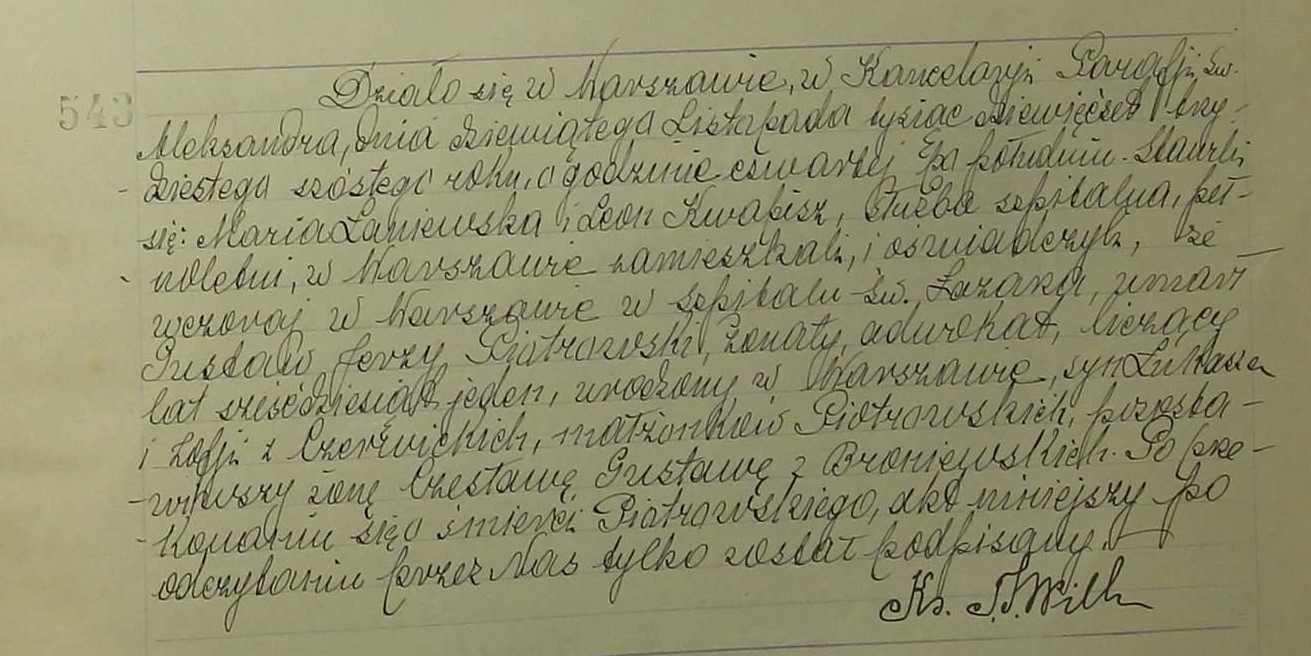 543 Działo się w Warszawie, w Kancelaryji Parafji Św.
Aleksandra, dnia dziewiątego Listapada tysiąc dziewięćset trzy-
dziestego szóstego roku, o godzinie czwartej po południu. Stawili
się: Maria Łaniewska i Leon Kwapisz, służba szpitalna, peł-
noletni, w Warszawie zamieszkali, i oświadczyli, że
wczoraj w Warszawie w szpitalu Św. Łazarza, umarł
Gustaw Jerzy Piotrowski, żonaty, adwokat, liczący
lat sześćdziesiąt jeden, urodzony w Warszawie, syn Łukasza
i Zofji z Czerwickich, małżonków Piotrowskich, pozosta-
wiwszy żonę Czesławę Gustawę z Broniewskich. Po prze-
konaniu się o śmierci Piotrowskiego, akt niniejszy po
odczytaniu przez Nas tylko został podpisany.
Ks.